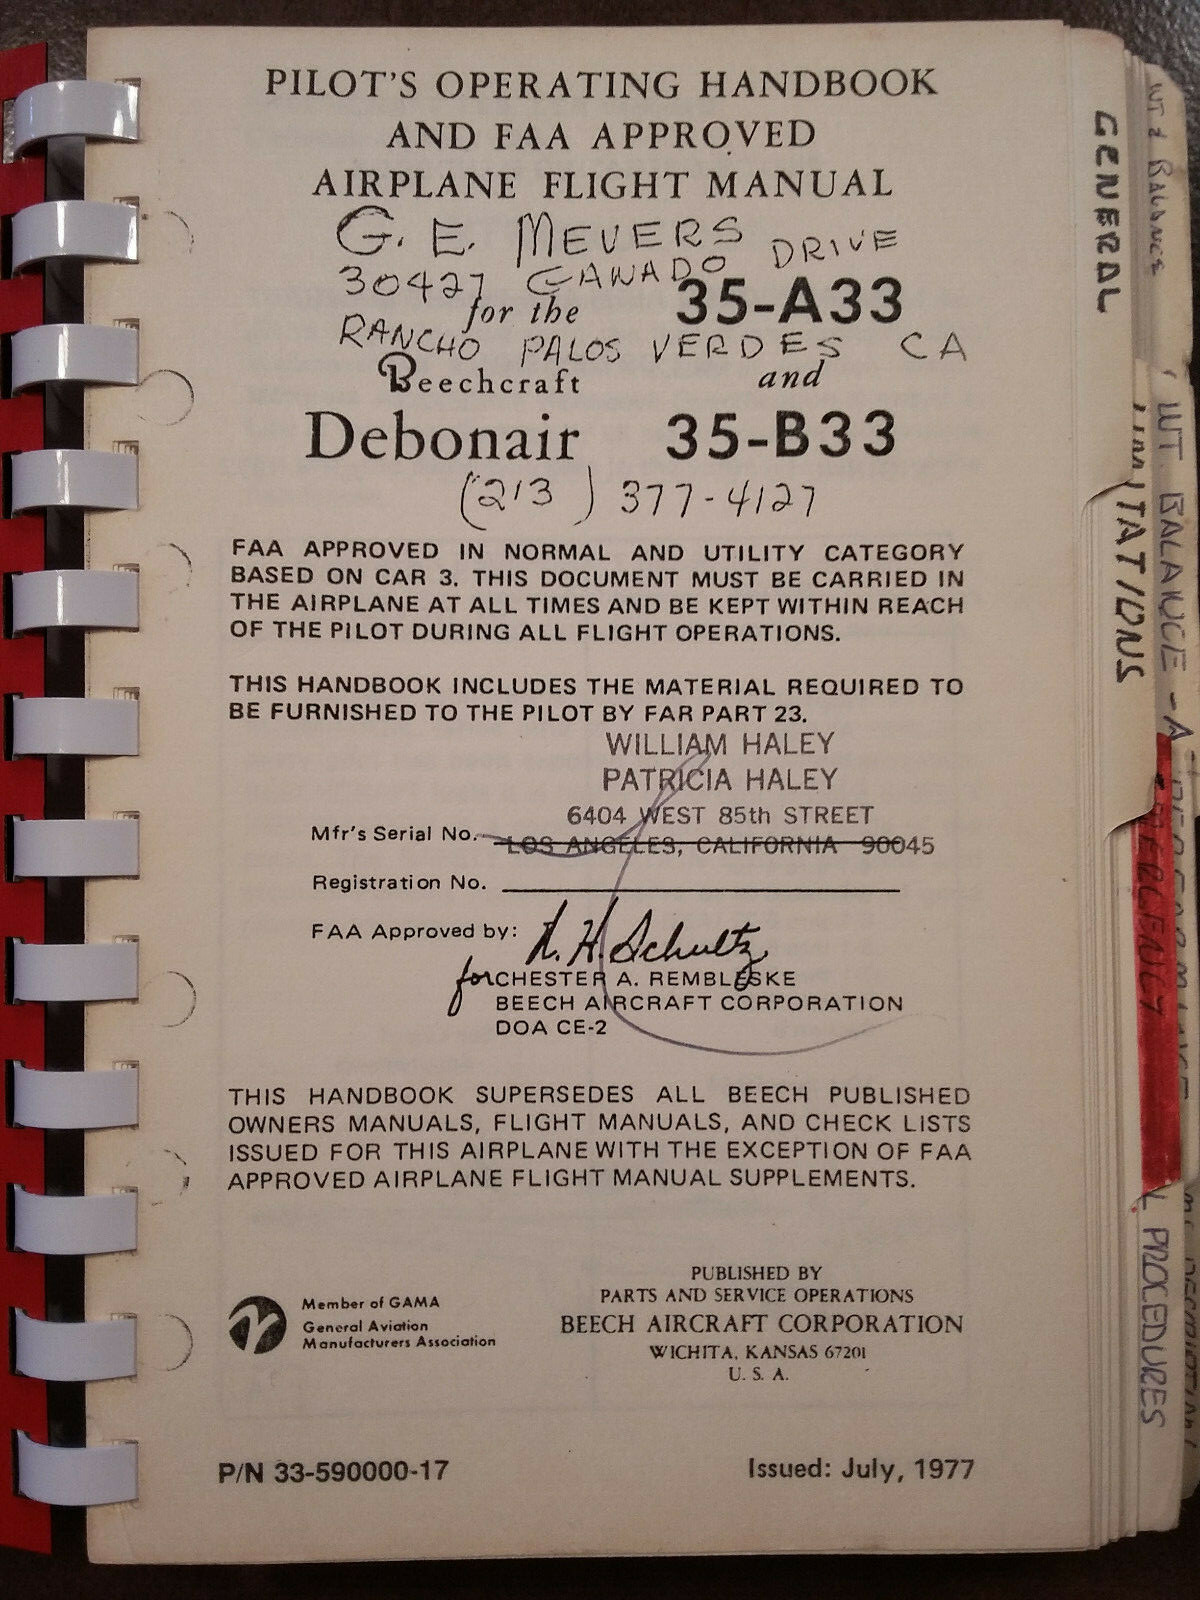 PILOT'S OPERATING HANDBOOK
AND FAA APPROVED
AIRPLANE FLIGHT MANUAL
G. E. MEVERS
30427 GANADO DRIVE
for the 35-A33
RANCHO PALOS VERDES CA
Beechcraft and
Debonair 35-B33
(213) 377-4127
FAA APPROVED IN NORMAL AND UTILITY CATEGORY
BASED ON CAR 3. THIS DOCUMENT MUST BE CARRIED IN
THE AIRPLANE AT ALL TIMES AND BE KEPT WITHIN REACH
OF THE PILOT DURING ALL FLIGHT OPERATIONS.
THIS HANDBOOK INCLUDES THE MATERIAL REQUIRED TO
BE FURNISHED TO THE PILOT BY FAR PART 23.
WILLIAM HALEY
PATRICIA HALEY
6404 WEST 85th STREET
Mfr's Serial No. LOS ANGELES, CALIFORNIA 90045
Registration No.
FAA Approved by: H. Schultz
for CHESTER A. REMBLESKE
BEECH AIRCRAFT CORPORATION
DOA CE-2
THIS HANDBOOK SUPERSEDES ALL BEECH PUBLISHED
OWNERS MANUALS, FLIGHT MANUALS, AND CHECK LISTS
ISSUED FOR THIS AIRPLANE WITH THE EXCEPTION OF FAA
APPROVED AIRPLANE FLIGHT MANUAL SUPPLEMENTS.
Member of GAMA
General Aviation
Manufacturers Association
PUBLISHED BY
PARTS AND SERVICE OPERATIONS
BEECH AIRCRAFT CORPORATION
WICHITA, KANSAS 67201
U. S. A.
P/N 33-590000-17
Issued: July, 1977
GENERAL
LIMITATIONS
EMERGENCY
PROCEDURES
WT & BALANCE
WT. BALANCE - A